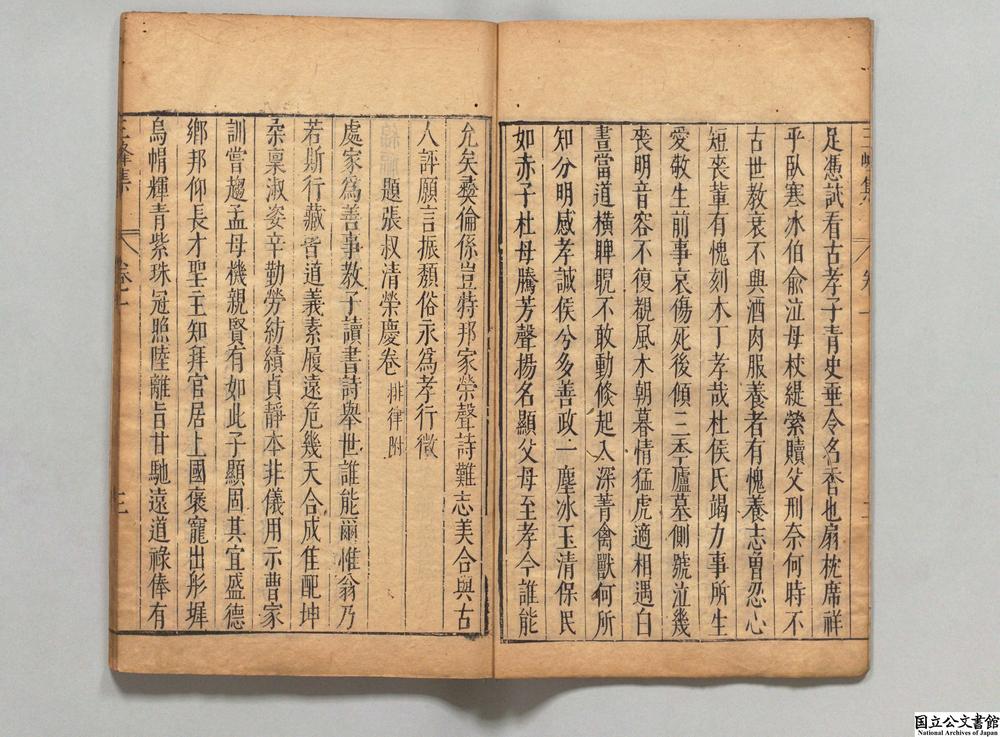 足憑試看古孝子青史垂令名香也扇枕席祥
乎臥寒冰伯俞泣母杖緹縈贖父刑奈何時不
古世教衰不興酒肉服養者有愧養志曽忍心
短喪輩有愧刻木丁孝哉杜侯氏竭力事所生
愛敬生前事哀傷死後傾三年廬墓側號泣幾
喪明音容不復覩風木朝暮情猛虎適相遇白
晝當道橫睥睨不敢動倏起入深菁禽獸何所
知分明感孝誠侯兮多善政一塵冰玉清保民
如赤子杜母騰芳聲揚名顯父母至孝今誰能
允矣彜倫係豈特邦家榮聲詩難志美合與古
人評願言振頽俗永為孝行徵
題張叔清榮慶卷 排律附
處家為善事教子讀書詩舉世誰能爾惟翁乃
若斯行藏皆道義素履遠危幾天合成佳配坤
柔稟淑姿辛勤勞紡績貞靜本非儀用示曹家
訓嘗趨孟母機親賢有如此子顯固其宜盛德
鄉邦仰長才聖主知拜官居上國褒寵出彤墀
烏帽輝青紫珠冠照陸離旨甘馳遠道祿俸有
三峰集 卷一 三
国立公文書館
National Archives of Japan